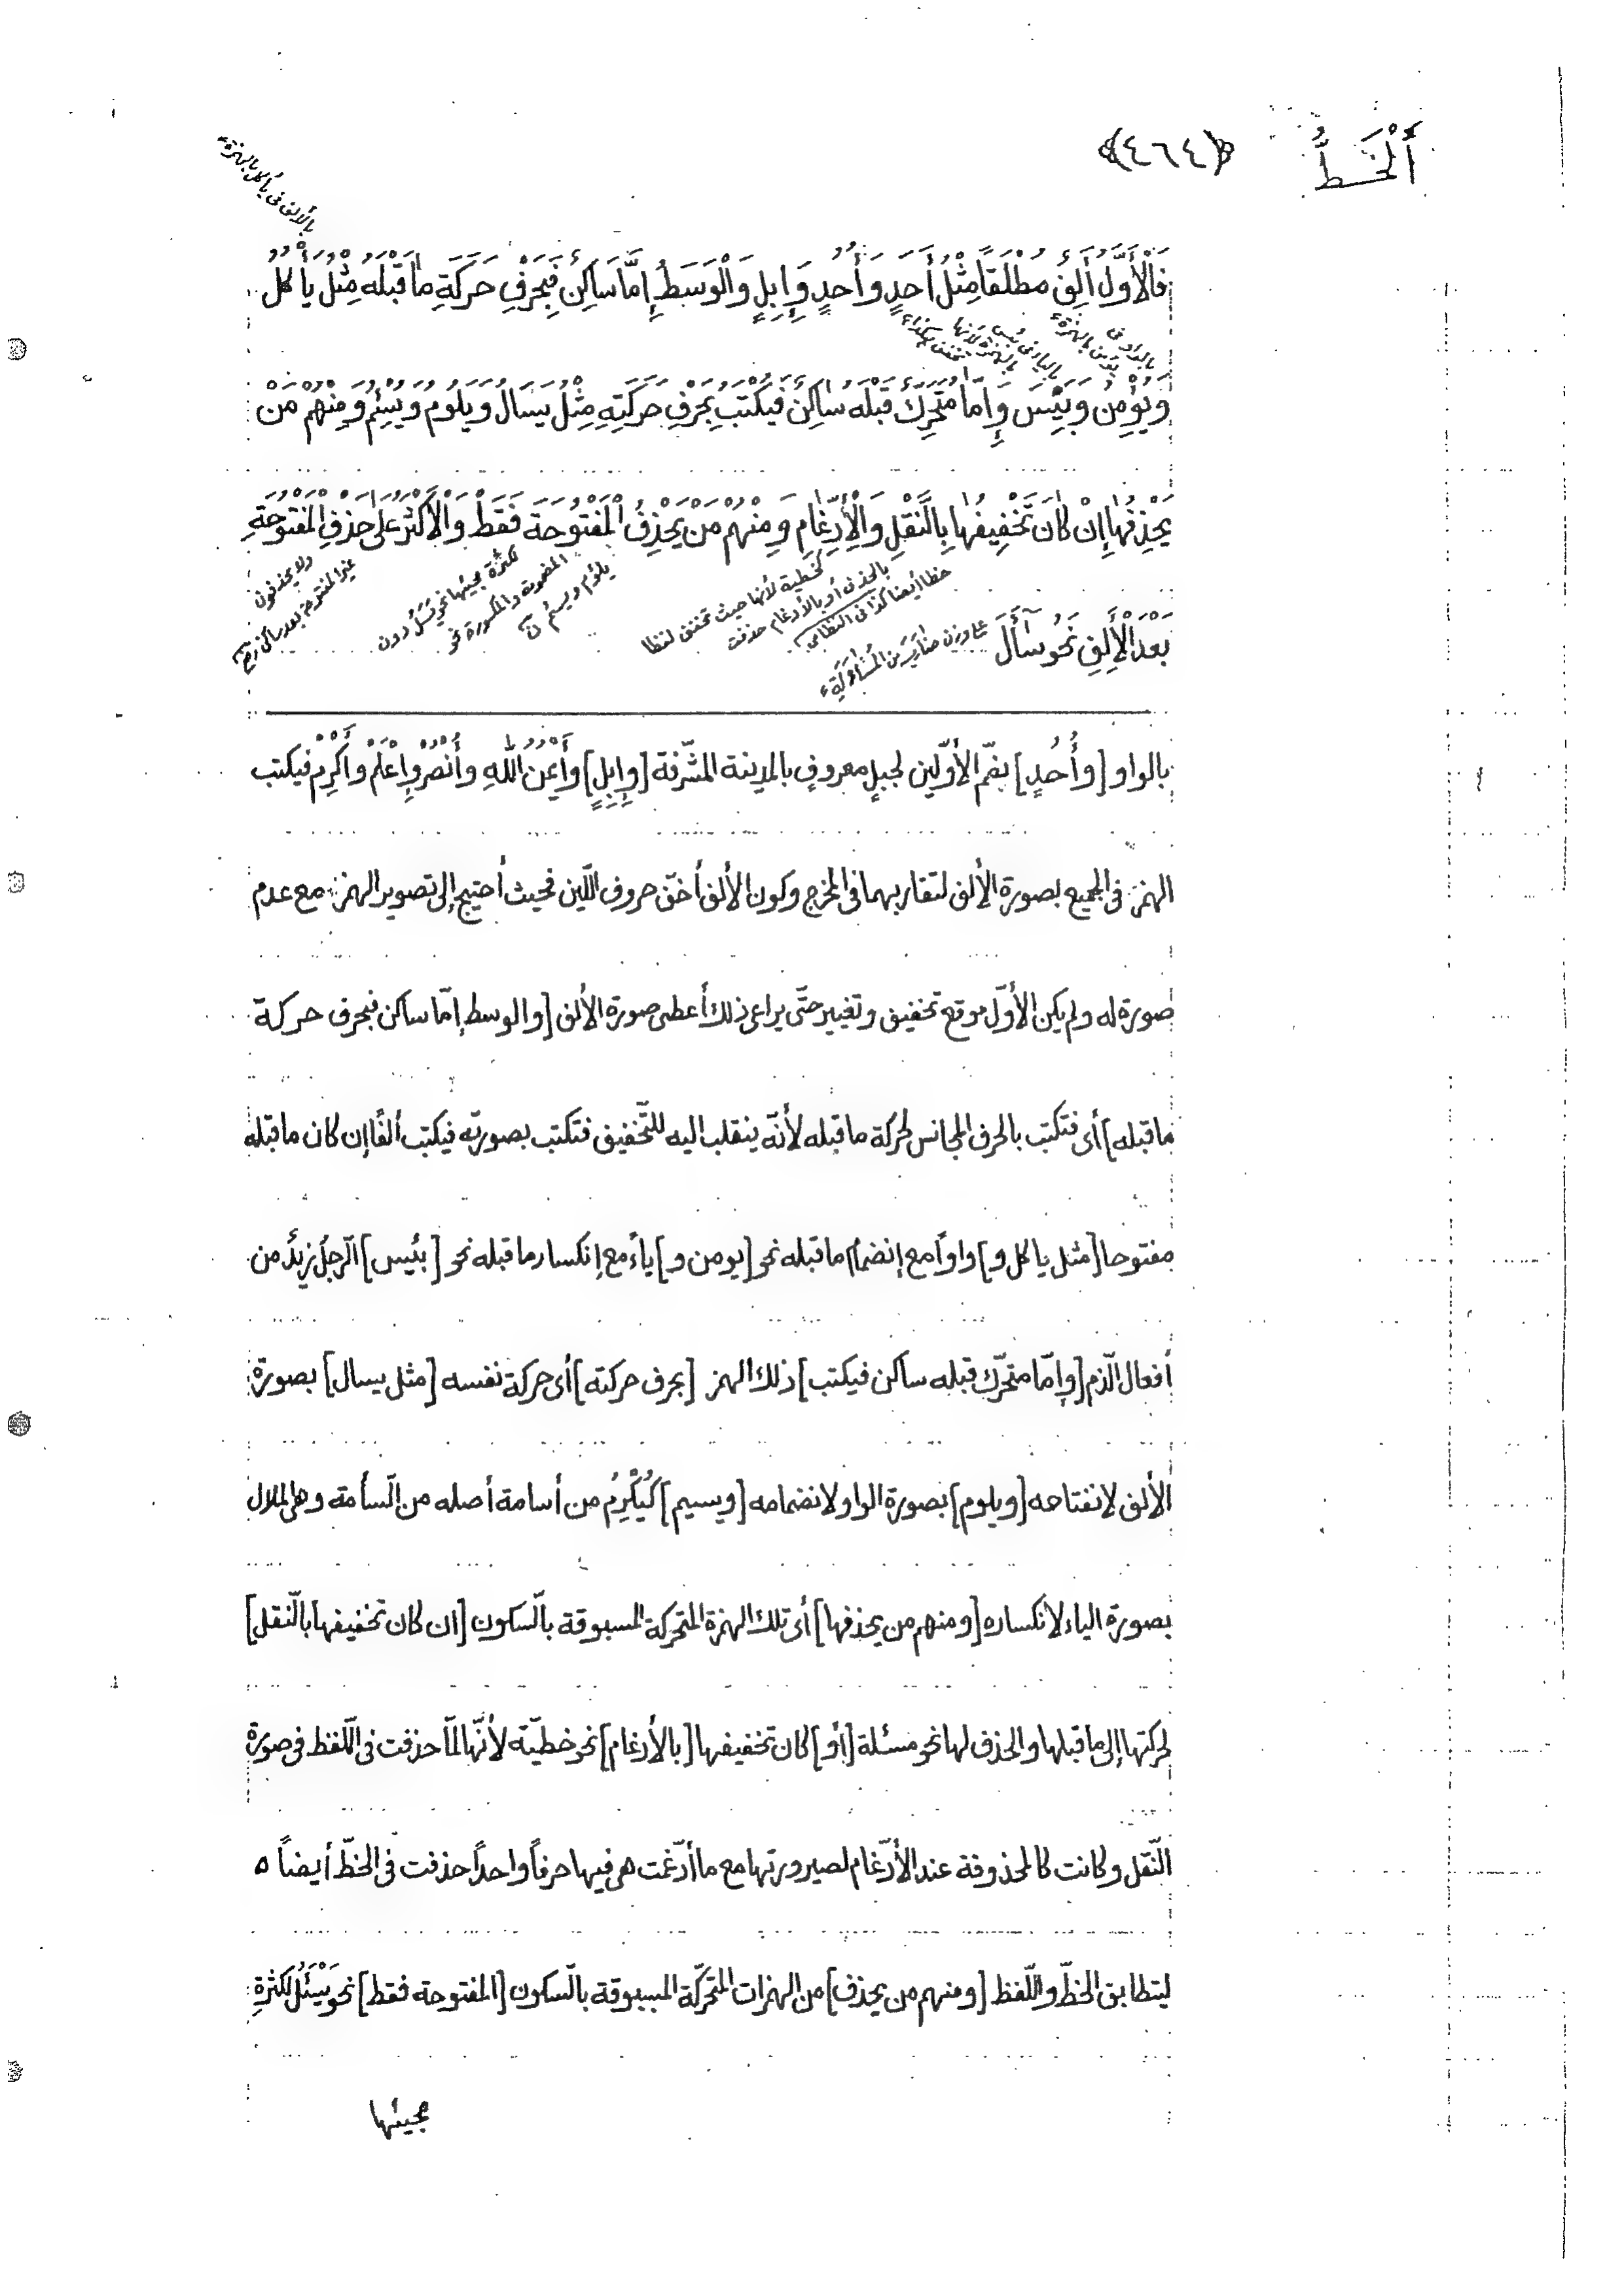 أَلْخَطُّ
﴿٤٦٤﴾
بالألف فى يأكل بالهمزة
فَالْأَوَّلُ أَلِفٌ مُطْلَقًا مِثْلُ أَحَدٍ وَأُحُدٍ وَإِبِلٍ وَالْوَسَطُ إِمَّا سَاكِنٌ فَبِحَرْفِ حَرَكَةِ مَا قَبْلَهُ مِثْلُ يَأْكُلُ
وَيُؤْمِنُ وَبِئْسَ وَإِمَّا مُتَحَرِّكٌ قَبْلَهُ سَاكِنٌ فَيُكْتَبُ بِحَرْفِ حَرَكَتِهِ مِثْلُ يَسْأَلُ وَيَلْؤُمُ وَيُسْئِمُ وَمِنْهُمْ مَنْ
يَحْذِفُهَا إِنْ كَانَ تَخْفِيفُهَا بِالنَّقْلِ وَالْأِدِّغَامِ وَمِنْهُمْ مَنْ يَحْذِفُ الْمَفْتُوحَةَ فَقَطْ وَالْأَكْثَرُ عَلَى حَذْفِ الْمَفْتُوحَةِ
كخطية لأنها حيث تخفف لفظا
بالحذف أو بالأدغام حذفت
خطا أيضا كذا فى النظامى
لكثرة مجيئها نحو يَسَلُ دون
المضمومة والمكسورة نحو
يلؤم ويسئم
ولا يحذفون
غير المفتوحة بعد ساكن
بَعْدَ الْأَلِفِ نَحْوُ سَآأَلَ
بالواو [وأُحُدٍ] بضمّ الأوّلين لجبلٍ معروفٍ بالمدينة المشرّفة [وَإِبِلٍ] وأَيْمُنُ اللّٰهِ وأُنْصُرْ وإِعْلَمْ وأَكْرِمْ فيكتب
الهمز فى الجميع بصورة الألف لتقاربهما فى المخرج وكون الألف أخفّ حروف اللّين فحيث أحتيج إلى تصوير الهمز مع عدم
صورة له ولم يكن الأوّل موقع تخفيف وتغيير حتّى يراعى ذلك أعطى صورة الألف [والوسط إمّا ساكن فبحرف حركة
ما قبله] أى فتكتب بالحرف المجانس لحركة ما قبله لأنّه ينقلب اليه للتّخفيف فتكتب بصورته فيكتب ألفًا إن كان ما قبله
مفتوحا [مثل ياكل و] واوًا مع إنضمام ما قبله نحو [يومن و] ياءً مع إنكسار ما قبله نحو [بئيس] الرّجلُ زيدٌ من
أفعال الّذم [وإمّا متحرّك قبله ساكن فيكتب] ذلك الهمز [بحرف حركته] أى حركة نفسه [مثل يسال] بصورة
الألف لانفتاحه [ويلوم] بصورة الواو لانضمامه [ويسيم] كَيُكْرِمُ من أسامة أصله من السّأمة وهى الملال
بصورة الياء لانكساره [ومنهم من يحذفها] أى تلك الهمزة المتحركة المسبوقة بالسّكون [ان كان تخفيفها بالنّقل]
لحركتها إلى ما قبلها والحذف لها نحو مسئلة [أو] كان تخفيفها [بالأدغام] نحو خطيّة لأنّها لمّا حذفت فى اللّفظ فى صورة
النّقل وكانت كالمحذوفة عند الأدّغام لصيرورتها مع ما أدّغمت هى فيها حرفاً واحداً حذفت فى الخطّ أيضاً ٥
ليتطابق الخطّ واللّفظ [ومنهم من يحذف] من الهمزات المتحرّكة المسبوقة بالسّكون [المفتوحة فقط] نحو يَسْئَلُ لكثرةِ
مجيئها